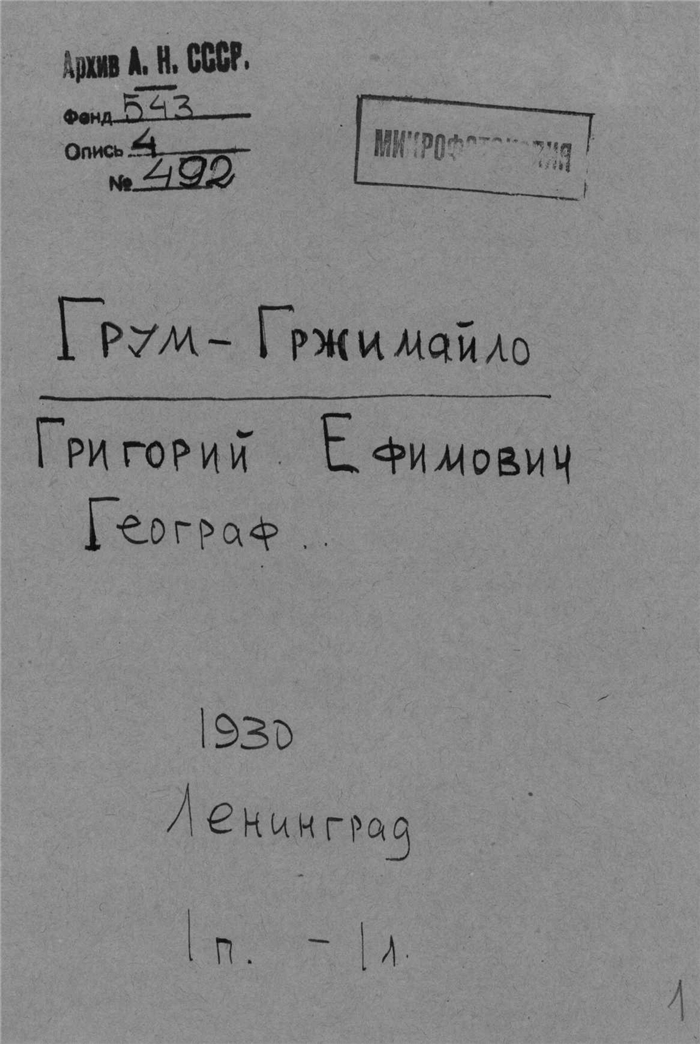 Архив А. Н. СССР.
Фонд 543
Опись 4
№ 492
МИКРОФОТОКОПИЯ
Грум-Гржимайло
Григорий Ефимович
Географ..
1930
Ленинград
1 п. - 1 л.
1